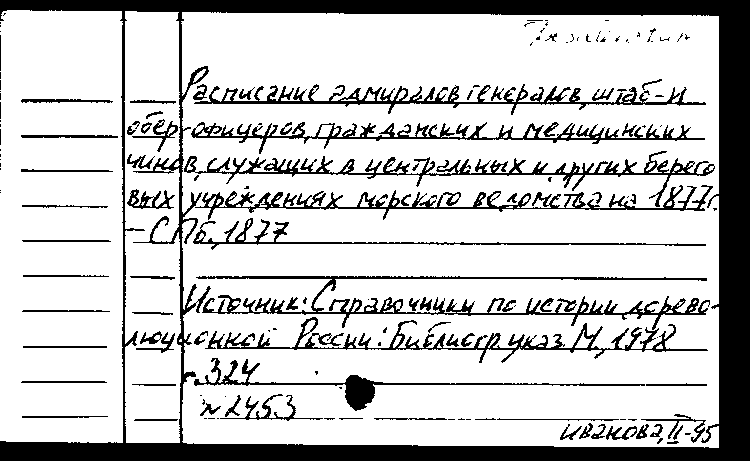 Расписание адмиралов, генералов, штаб- и
обер-офицеров, гражданских и медицинских
чинов, служащих в центральных и других берего
вых учреждениях морского ведомства на 1877г.
– СПб., 1877
Источник: Справочники по истории дорево-
люционной России: Библиогр. указ. М., 1978
с. 324
№ 2453
Иванова, II-95